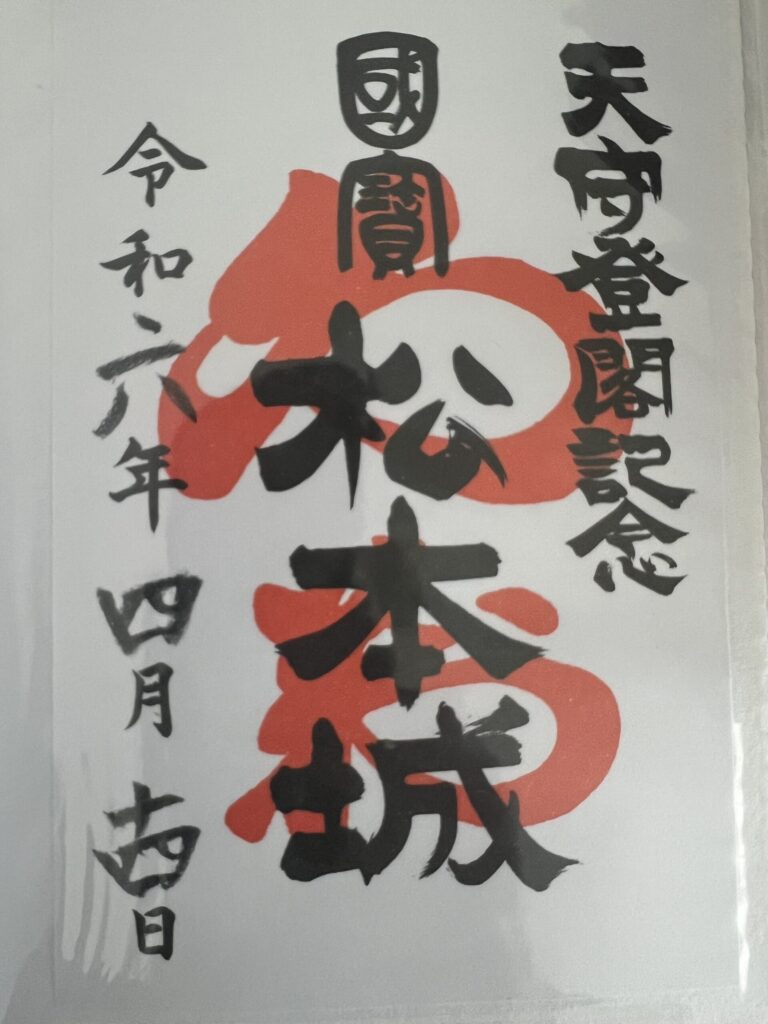 天守登閣記念
國寶
松本城
令和六年四月十四日